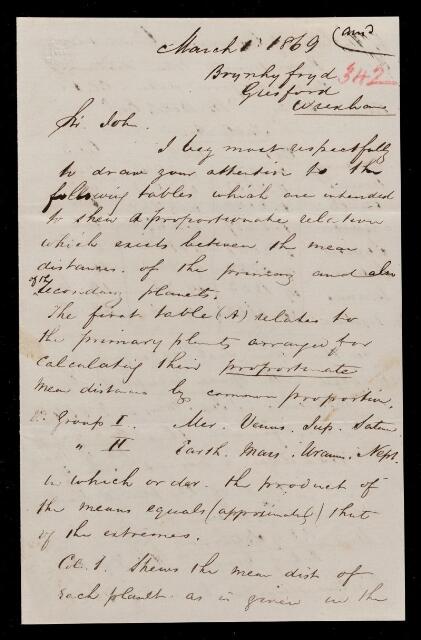 March 1 1869 (ansd
Brynhyfryd 342
Gresford
Wrexham
Sir John.
I beg most respectfully
to draw your attention to the
following tables which are intended
to shew a proportionate relation
which exists between the mean
distances of the primary and also
of the secondary planets.
The first table (A) relates to
the primary planets arranged for
calculating their proportionate
mean distances by common proportion,
Group I. Mer. Venus. Jup. Saturn
" II Earth. Mars. Uranus. Nept.
in which order the product of
the means equals (approximately) that
of the extremes.
Col. 1. Shews the mean dist of
each planet as is given in the